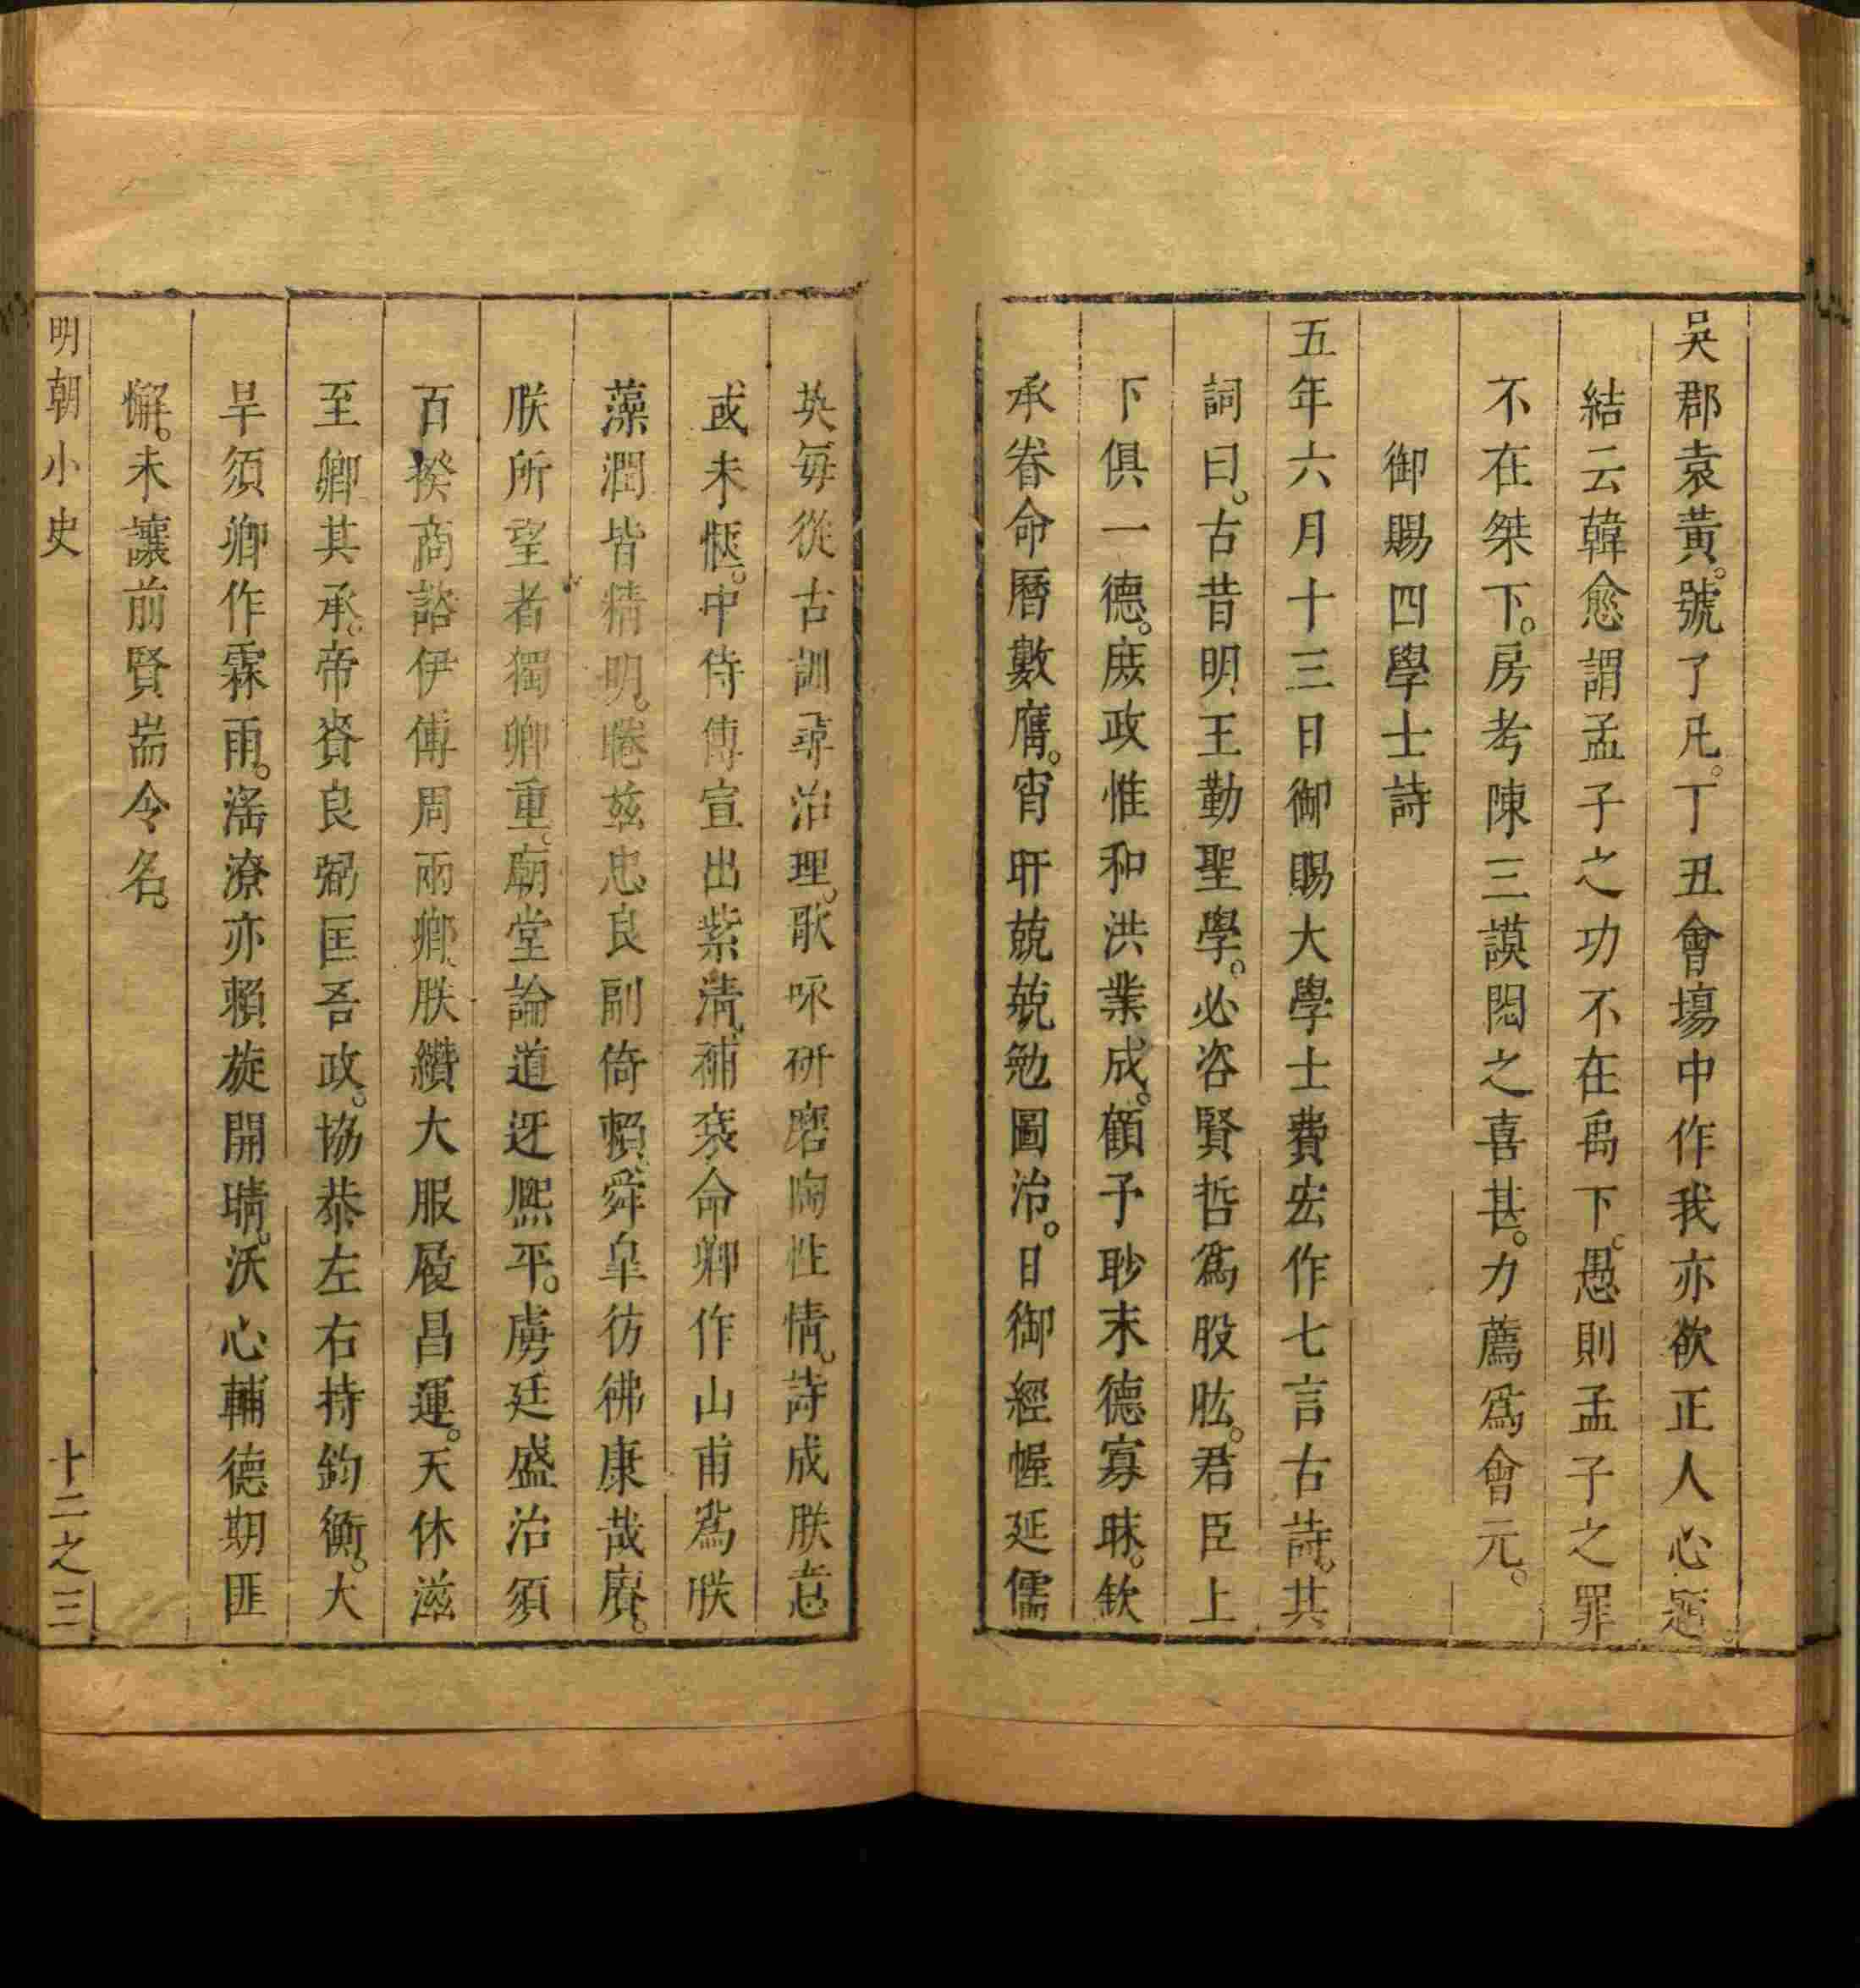 吳郡袁黃。號了凡。丁丑會塲中作我亦欲正人心題
結云韓愈謂孟子之功不在禹下。愚則孟子之罪
不在桀下。房考陳三謨閱之喜甚。力薦爲會元。
御賜四學士詩
五年六月十三日御賜大學士費宏作七言古詩。其
詞曰。古昔明王勤聖學。必咨賢哲爲股肱。君臣上
下俱一德。庶政惟和洪業成。顧予眇末德寡昧。欽
承眷命曆數膺。宵旰兢兢勉圖治。日御經幄延儒
英每從古訓尋治理。歌咏研磨陶性情。詩成朕意
或未愜。中侍傳宣出紫清。補衮命卿作山甫爲朕
藻潤皆精明。睠茲忠良副倚賴。舜皐彷彿康哉賡。
朕所望者獨卿重。廟堂論道迓熈平。虞廷盛治須
百揆商諮伊傅周兩卿。朕纘大服履昌運。天休滋
至卿其承。帝賚良弼匡吾政。協恭左右持鈞衡。大
旱須卿作霖雨。滛潦亦賴旋開晴。沃心輔德期匪
懈。未讓前賢耑令名。
明朝小史
十二之三